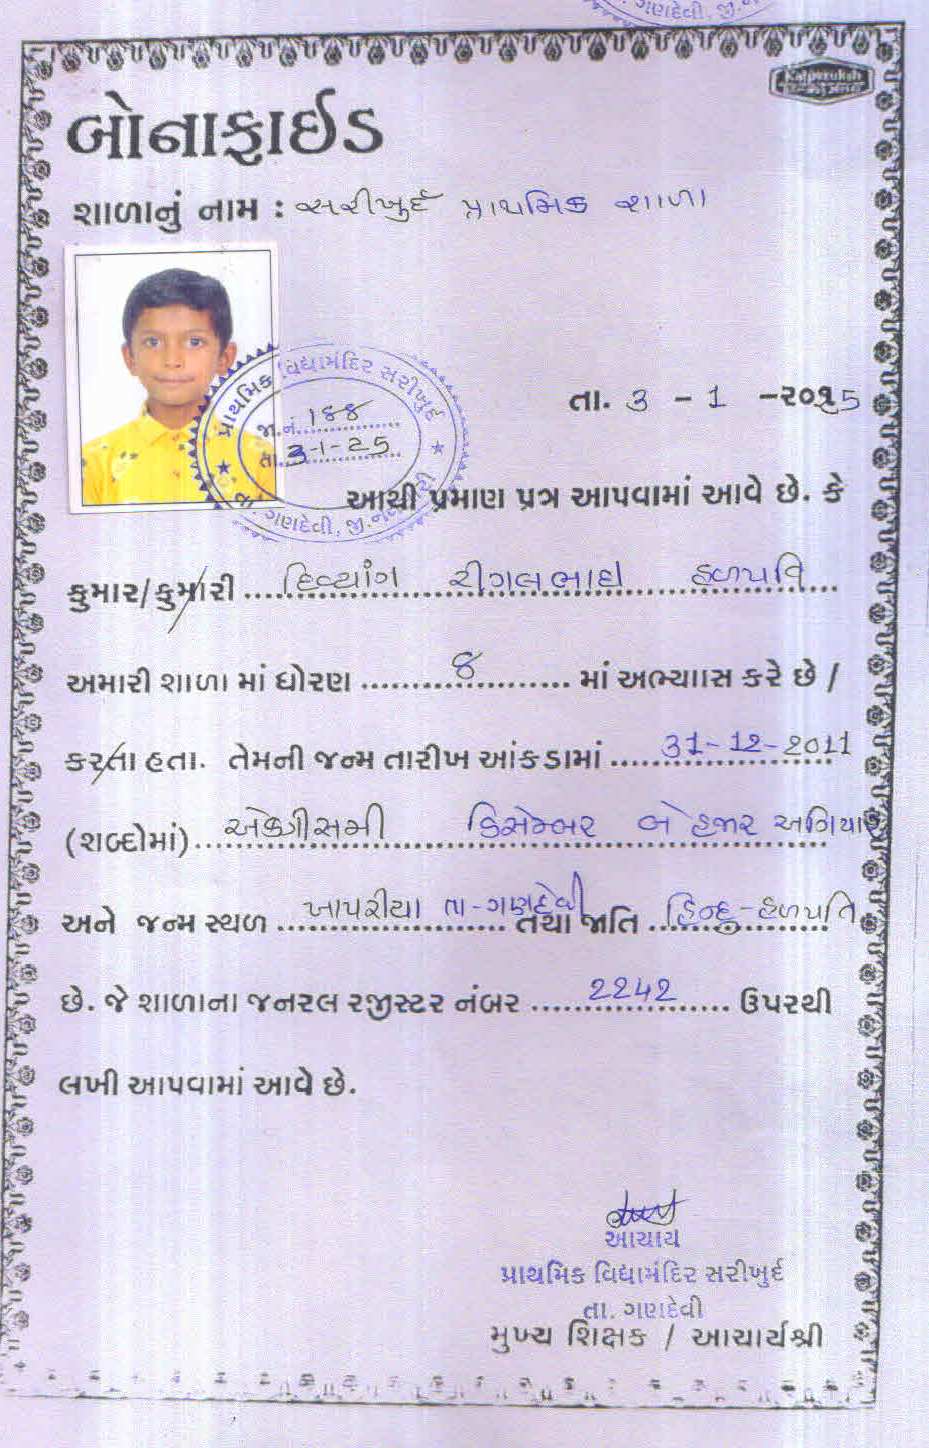 ગણદેવી, જી.
Kalpvruksh
બોનાફાઈડ
શાળાનું નામ : સરીખુર્દ પ્રાથમિક શાળા
પ્રાથમિક વિદ્યામંદિર સરીખુર્દ
જા.નં. ૧૪૪
તા. 3-1-25
તા. ગણદેવી, જી.
તા. 3 - 1 - ૨૦25
આથી પ્રમાણ પત્ર આપવામાં આવે છે. કે
કુમાર/કુમારી દિવ્યાંગ રીગલભાઈ હળપતિ
અમારી શાળા માં ધોરણ 8 માં અભ્યાાસ કરે છે /
કરતા હતા. તેમની જન્મ તારીખ આંકડામાં 31-12-2011
(શબ્દોમાં) એકત્રીસમી ડિસેમ્બર બે હજાર અગિયાર
અને જન્મ સ્થળ ખાપરીયા તા-ગણદેવી તથા જાતિ હિન્દુ-હળપતિ
છે. જે શાળાના જનરલ રજીસ્ટર નંબર 2242 ઉપરથી
લખી આપવામાં આવે છે.
આચાર્ય
પ્રાથમિક વિદ્યામંદિર સરીખુર્દ
તા. ગણદેવી
મુખ્ય શિક્ષક / આચાર્યશ્રી